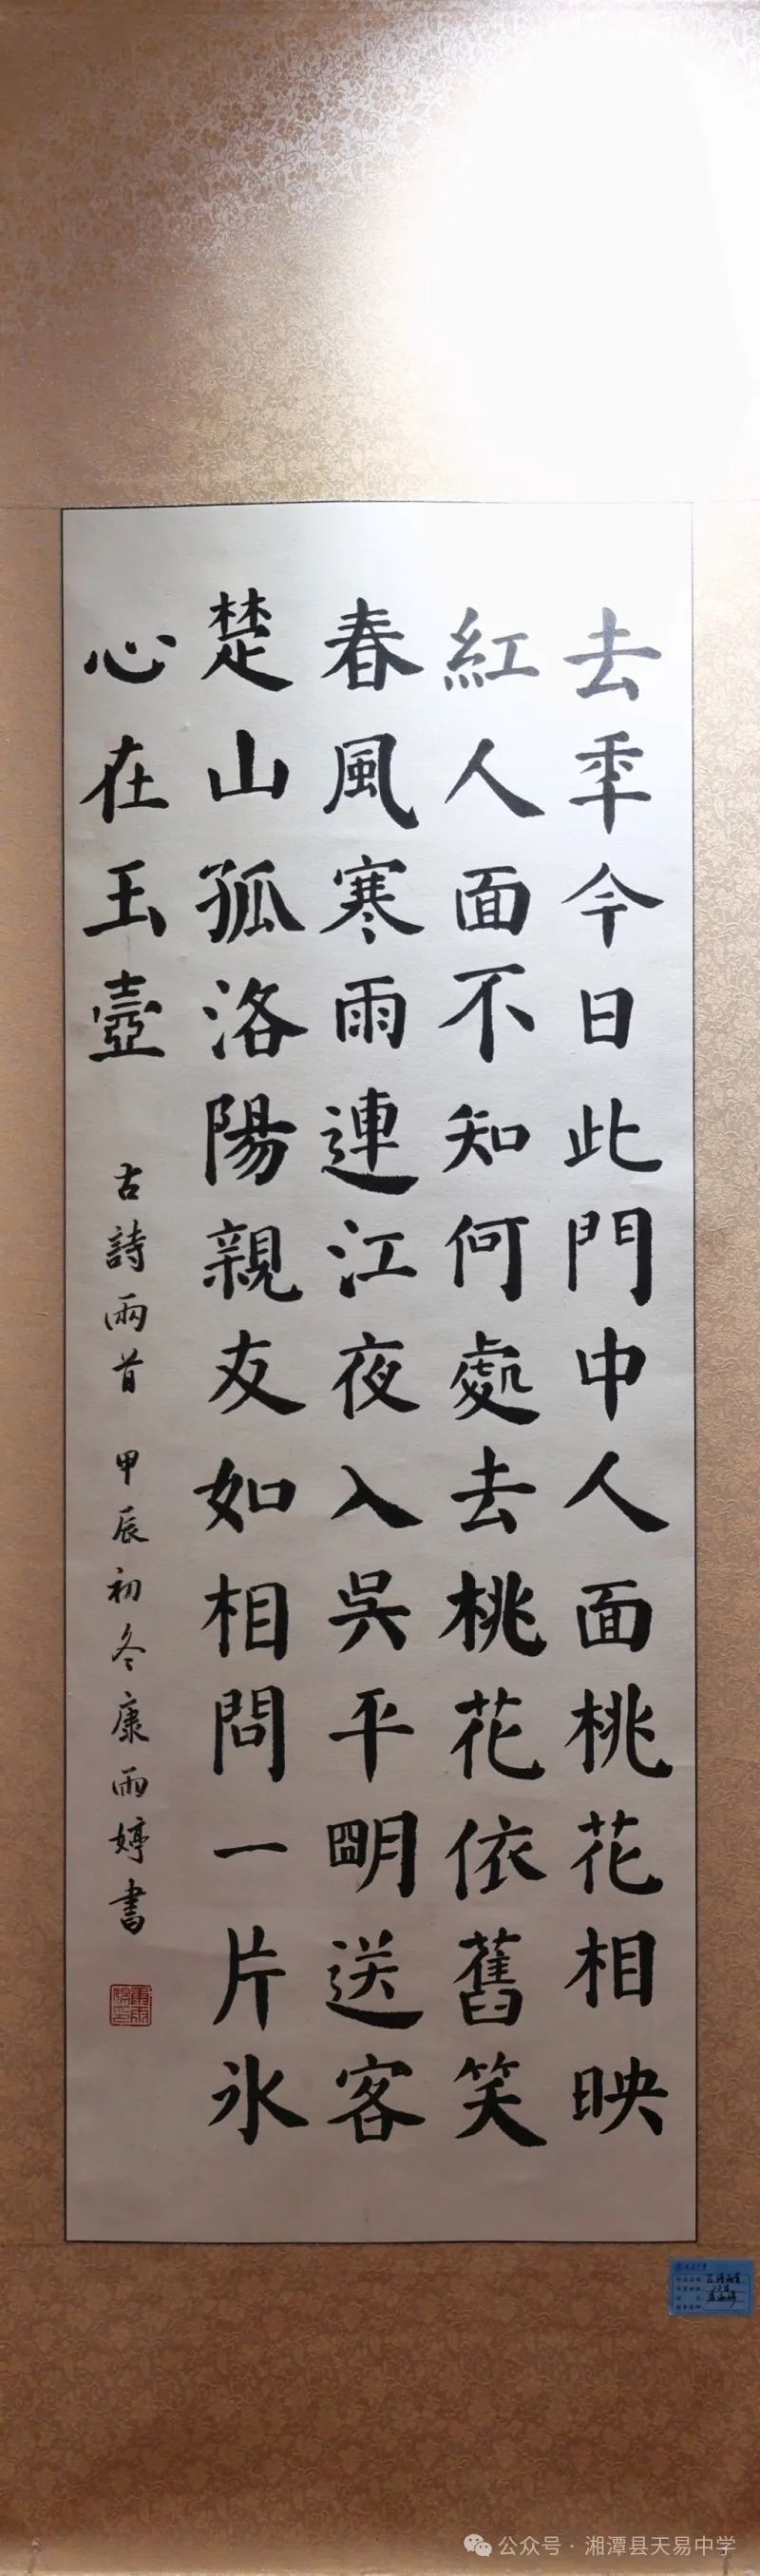 去年今日此門中人面桃花相映
紅人面不知何處去桃花依舊笑
春風寒雨連江夜入吳平明送客
楚山孤洛陽親友如相問一片氷
心在玉壺
古詩兩首 甲辰初冬康雨婷書
公众号·湘潭县天易中学